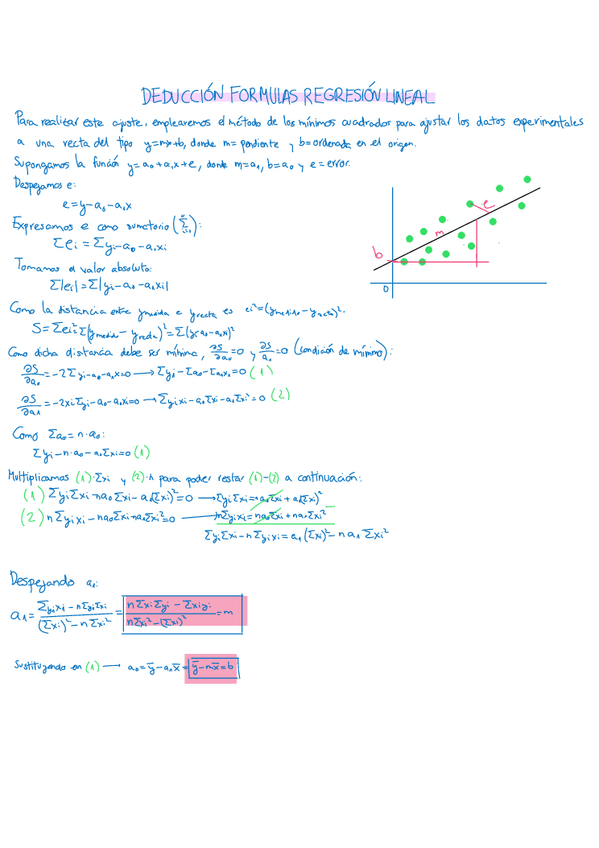 DEDUCCIÓN FORMULAS REGRESIÓN LINEAL
Para realizar este ajuste, emplearemos el método de los mínimos cuadrados para ajustar los datos experimentales
a una recta del tipo y=mx+b, donde m= pendiente y b=ordenada en el origen.
Supongamos la función y=a₀+a₁x+e, donde m=a₁, b=a₀ y e=error.
Despejamos e:
e=y-a₀-a₁x
Expresamos e como sumatorio (Σ):
Σei = Σyi-a₀-a₁xi
Tomamos el valor absoluto:
Σ|ei|=Σ|yi-a₀-a₁xi|
Como la distancia entre ymedida e yrecta es ei²=(ymedida-yrecta)².
S=Σei²Σ(ymedida-yrecta)²=Σ(y-a₀-a₁x)²
Como dicha distancia debe ser mínima, ∂S/∂a₀=0 y ∂S/a₁=0 (condición de mínimo):
∂S/∂a₀=-2Σyi-a₀-a₁x=0 → Σyi-Σa₀-Σa₁x₁=0 (1)
∂S/∂a₁=-2xiΣyi-a₀-a₁xi=0 → Σyixi-a₀Σxi-a₁Σxi²=0 (2)
Como Σa₀=n·a₀:
Σyi-n·a₀-a₁Σxi=0 (1)
Multiplicamos (1)·Σxi y (2)·n para poder restar (1)-(2) a continuación:
(1) ΣyiΣxi-na₀Σxi-a₁(Σxi)²=0 → ΣyiΣxi=na₀Σxi+a₁(Σxi)²
(2) nΣyixi-na₀Σxi-na₁Σxi²=0 → nΣyixi=na₀Σxi+na₁Σxi²
ΣyiΣxi-nΣyixi=a₁(Σxi)²-na₁Σxi²
Despejando a₁:
a₁=Σyixi-nΣyiΣxi/(Σxi)²-nΣxi²=nΣxiΣyi-Σxiyi/nΣxi²-(Σxi)²=m
Sustituyendo en (1) → a₀=ȳ-a₁x̄=ȳ-mx̄=b
e
m
b
0